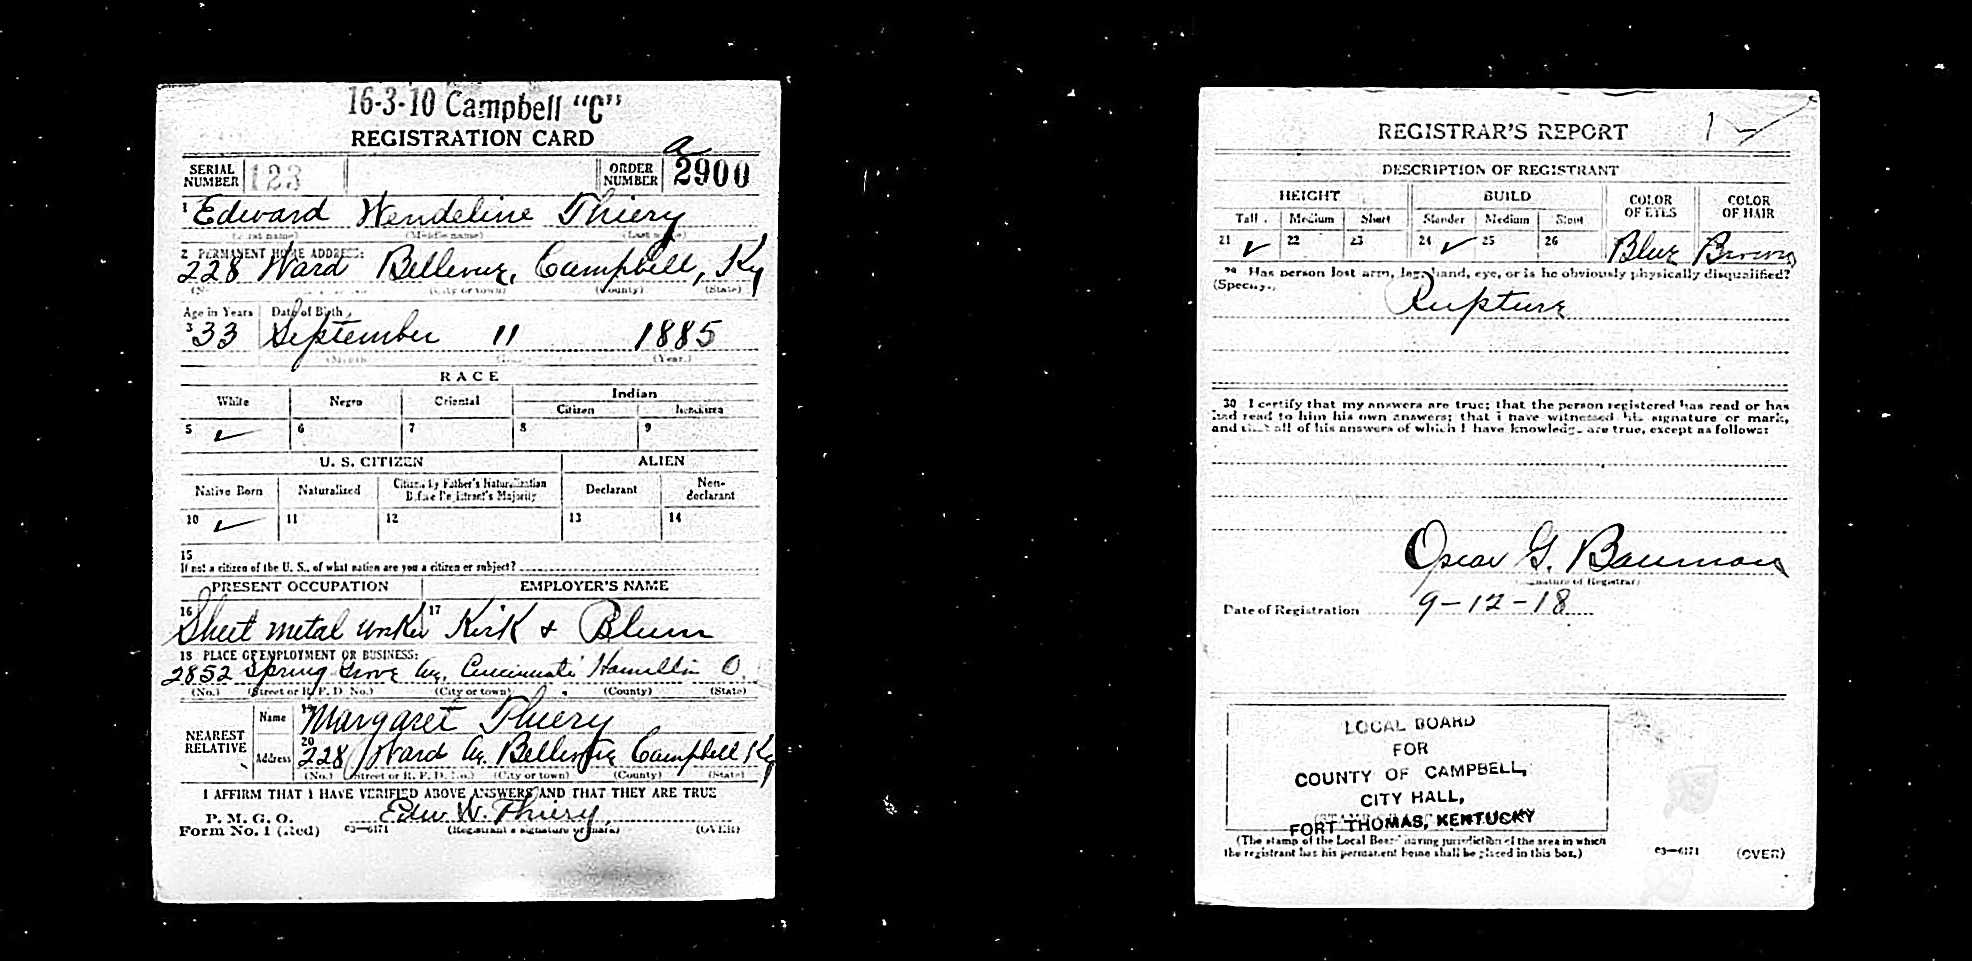 16-3-10 Campbell "C"
REGISTRATION CARD
SERIAL NUMBER 123 ORDER NUMBER a 2900
1 Edward Wendeline Thiery
(First name) (Middle name) (Last name)
2 PERMANENT HOME ADDRESS:
228 Ward Bellevue, Campbell, Ky
(City or town) (County) (State)
Age in Years Date of Birth
3 33 September 11 1885
(Month) (Year.)
RACE
White Negro Oriental Indian
Citizen
5 ✓ 6 7 8 9
U. S. CITIZEN ALIEN
Native Born Naturalized Citizen by Father's Naturalization Before Registrant's Majority Declarant Non-declarant
10 ✓ 11 12 13 14
15
If not a citizen of the U. S., of what nation are you a citizen or subject?
PRESENT OCCUPATION EMPLOYER'S NAME
16 Sheet metal worker 17 Kirk & Blum
18 PLACE OF EMPLOYMENT OR BUSINESS:
2852 Spring Grove Av. Cincinnati Hamilton O.
(No.) (Street or R. F. D. No.) (City or town) (County) (State)
NEAREST RELATIVE Name 19 Margaret Thiery
Address 20 228 Ward Av. Bellevue Campbell Ky
(No.) (Street or R. F. D. No.) (City or town) (County) (State)
I AFFIRM THAT I HAVE VERIFIED ABOVE ANSWERS AND THAT THEY ARE TRUE
P. M. G. O.
Form No. 1 (Red) C3—6171 Edw W. Thiery
(Registrant's signature or mark) (OVER)
REGISTRAR'S REPORT
DESCRIPTION OF REGISTRANT
HEIGHT BUILD COLOR OF EYES COLOR OF HAIR
Tall Medium Short Slender Medium Stout
21 ✓ 22 23 24 ✓ 25 26 Blue Brown
29 Has person lost arm, leg, hand, eye, or is he obviously physically disqualified?
(Specify.)
Rupture
30 I certify that my answers are true; that the person registered has read or has
had read to him his own answers; that I have witnessed his signature or mark,
and that all of his answers of which I have knowledge are true, except as follows:
Oscar G. Bauman
(Signature of Registrar)
Date of Registration 9-12-18
LOCAL BOARD
FOR
COUNTY OF CAMPBELL,
CITY HALL,
FORT THOMAS, KENTUCKY
(The stamp of the Local Board having jurisdiction of the area in which
the registrant has his permanent home shall be placed in this box.)
C3—6171 (OVER)